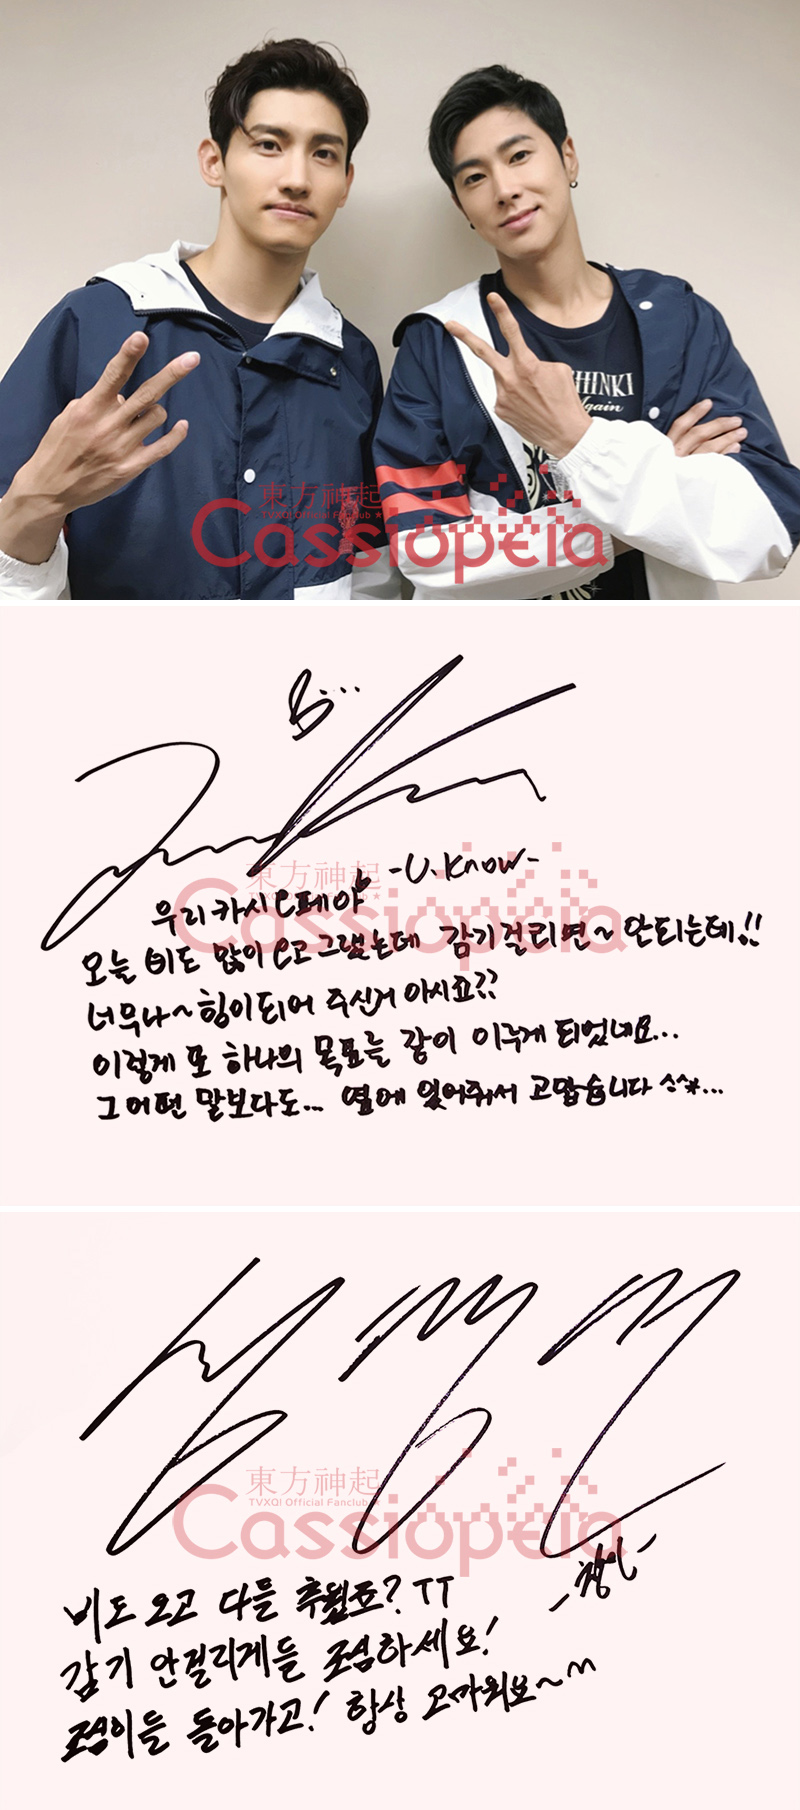 SHINKI
Again
東方神起
TVXQ! Official Fanclub ★
Cassiopeia
B...
-U.Know-
東方神起
우리 카시오페아
Cassiopeia
오늘 비도 많이 오고 그랬는데 감기걸리면~ 안되는데!!
너무나~ 힘이되어 주신거 아시죠??
이렇게 또 하나의 목표를 같이 이루게 되었네요...
그 어떤 말보다도... 옆에 있어줘서 고맙습니다 ^^*...
東方神起
TVXQ! Official Fanclub ★
Cassiopeia
-창민-
비도 오고 다들 추웠죠? TT
감기 안걸리게들 조심하세요!
조심히들 돌아가고! 항상 고마워요~^^